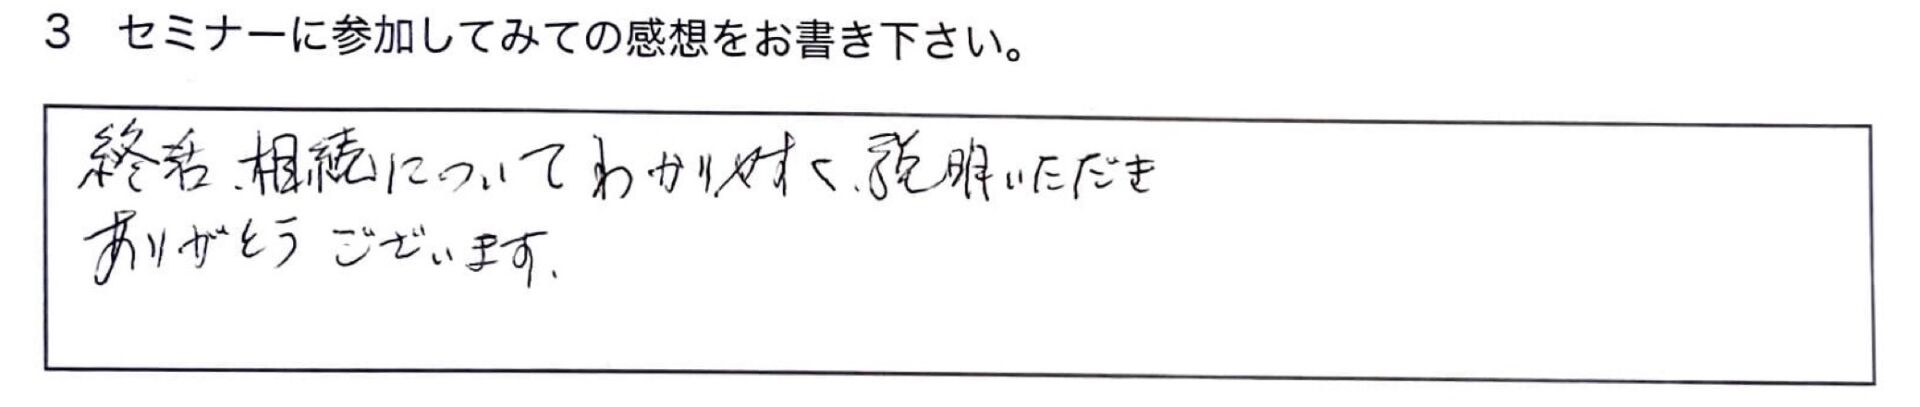 3　セミナーに参加してみての感想をお書き下さい。
終活、相続についてわかりやすく、説明いただき
ありがとうございます。